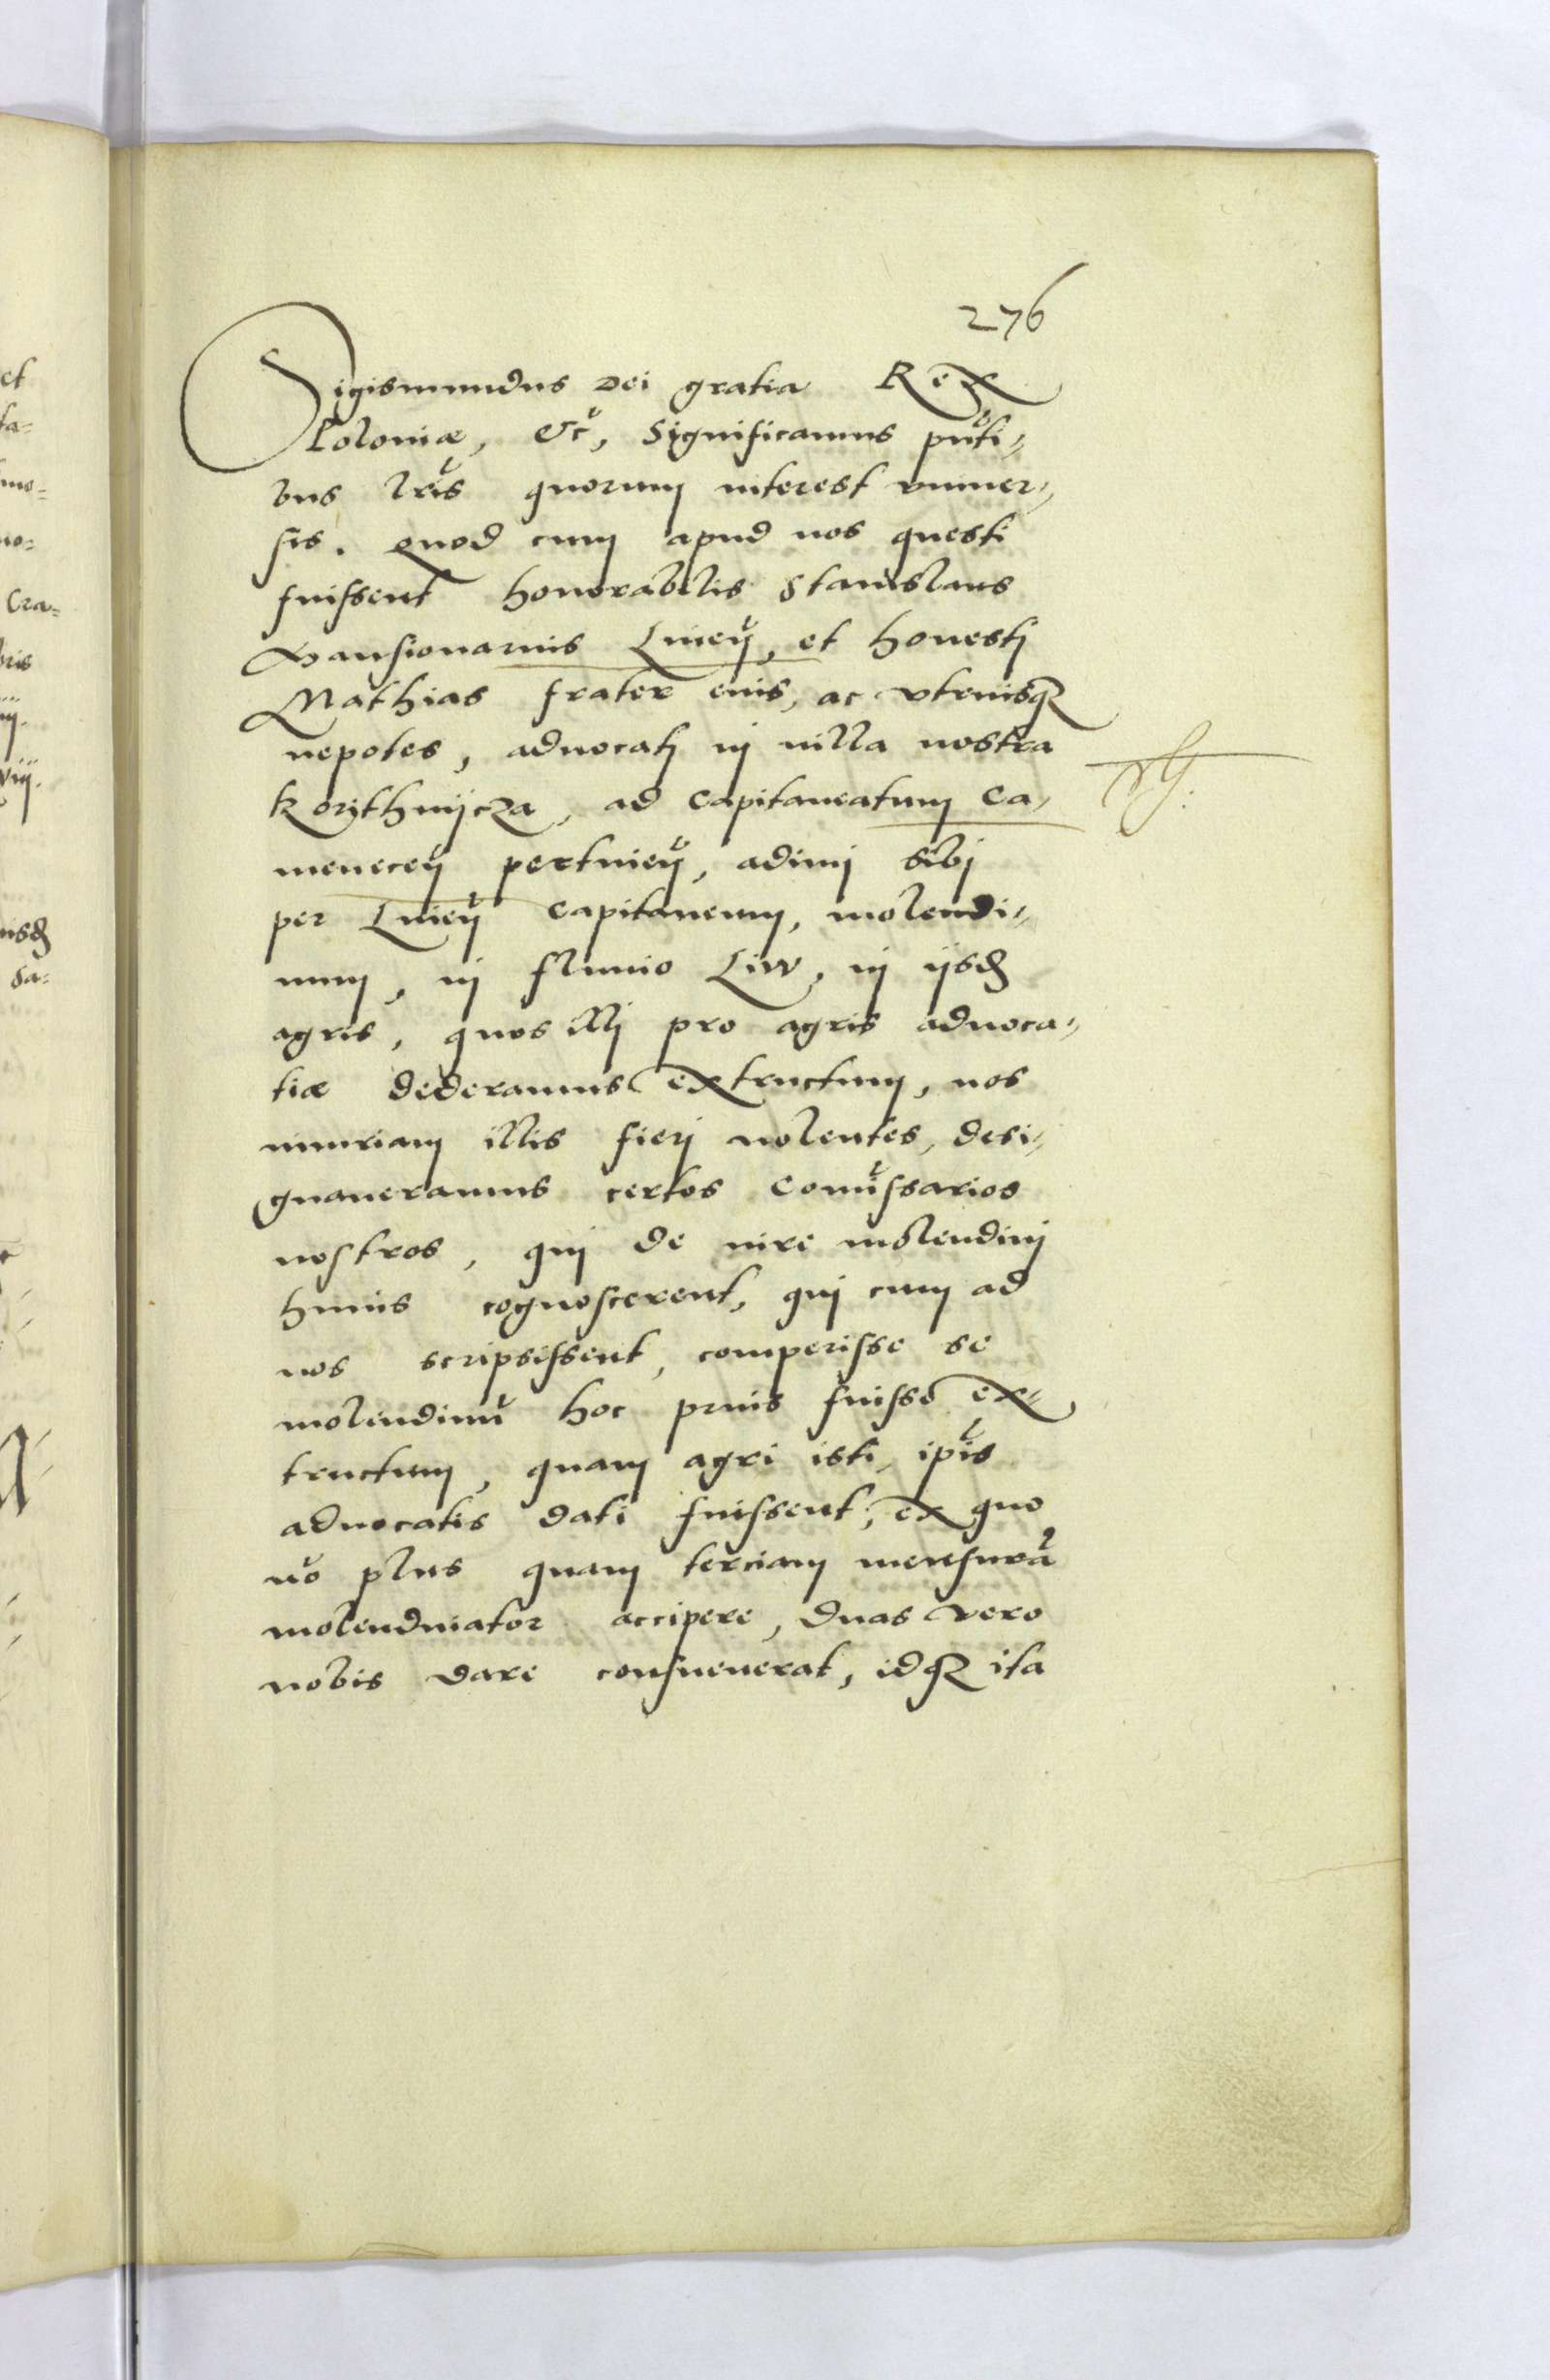 276
Sigismundus Dei gratia Rex
Poloniæ, &c, Significamus pñti-
bus lr̃is quorum interest vniuer-
sis. Quod cum apud nos questi
fuissent honorabilis Stanislaus
Mansionarius Liuen̄, et honesti
Mathias frater eius, ac vtriusq3
nepotes, aduocati in uilla nostra
Korythnijcza, ad capitaneatum Ca-
menecen̄ pertinen̄, adimi sibi
per Liuen̄ Capitaneum, molendi-
num, in fluuio Liw, in ijsd
agris, quos illi pro agris aduoca-
tiæ dederamus extructum, nos
iniuriam illis fieri nolentes, desi-
gnaueramus certos Com̃issarios
nostros, qui de iure molendini
huius cognoscerent, qui cum ad
nos scripsissent, comperisse se
molendinũ hoc prius fuisse ex-
tructum, quam agri isti, ip̃is
aduocatis dati fuissent, ex quo
nõ plus quam terciam mensurã
molendinator accipere, duas vero
nobis dare consueuerat, idq3 ita